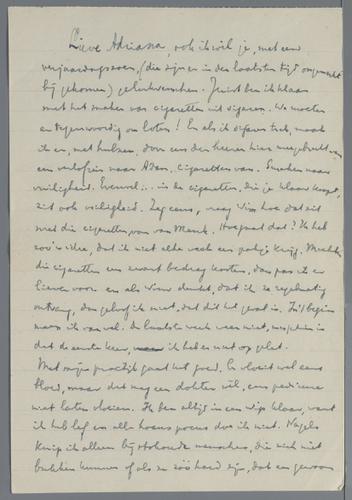 Lieve Adriana, ook ik wil je, met een
verjaardagszoen, (die zijn er in de laatste tijd
bij gekomen) gelukwenschen. Juist ben ik klaar
met het maken van cigaretten uit sigaren. We moeten
er tegenwoordig om loten! En als ik sigaren trek, maak
ik er, met hulzen, door een der heeren hier meegebracht van
een verlofreis naar Adam, cigaretten van. Smaken naar
vuiligheid. Evenwel .. in de cigaretten, die je klaar koopt,
zit ook vuiligheid. Zeg eens, vraag Wim hoe dat zit
met die cigaretten van van Marck. Hoe gaat dat? Ik heb
zoo'n idee, dat ik niet elke week een pakje krijg. Mochten
die cigaretten een zwart bedrag kosten, dan pas ik er
liever voor en als Wim denkt, dat ik ze regelmatig
ontvang, dan geloof ik niet, dat dit het geval is. In 't begin
was ik van wel. De laatste week weer niet, misschien is
dat de eerste keer, ik heb er niet op gelet.
Met mijn praktijk gaat het goed. Er vloeit wel eens
bloed, maar dat mag een dokter wel, een pedicure
niet laten vloeien. Ik ben altijd in een wip klaar, want
ik heb lef en alle hocus pocus doe ik niet. Nagels
knip ik alleen bij stokoude menschen, die zich niet
bukken kunnen of als ze zóó hard zijn, dat een gewoon